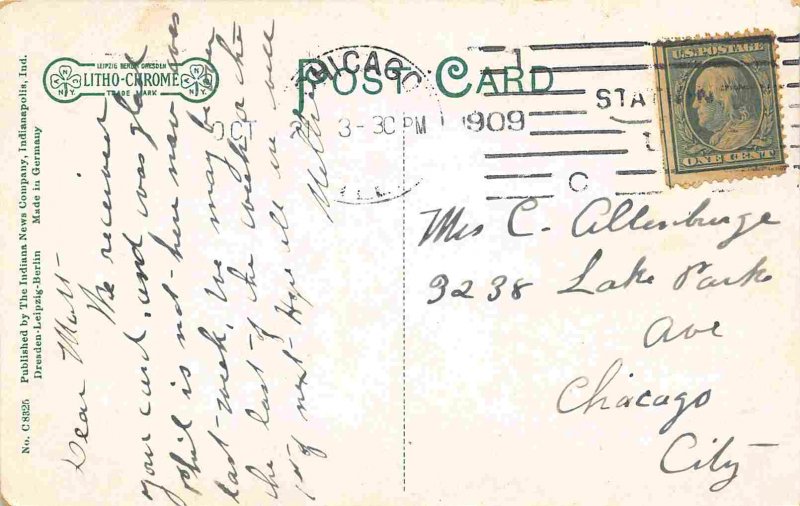 No. C 8325 Published by The Indiana News Company, Indianapolis, Ind.
Dresden-Leipzig-Berlin Made in Germany
LEIPZIG BERLIN DRESDEN
LITHO-CHROME
TRADE MARK
N.Y.
N.Y.
POST CARD
CHICAGO
OCT
3-30 PM
ILL.
1909
STA
U.S. POSTAGE
ONE CENT
Dear
We received
your card, and was glad
Phil is not here now was
last week, We may be over
the last of the week or the
1st of next Hope all are well
Mrs C. Allenburge
3238 Lake Park
Ave
Chicago
City